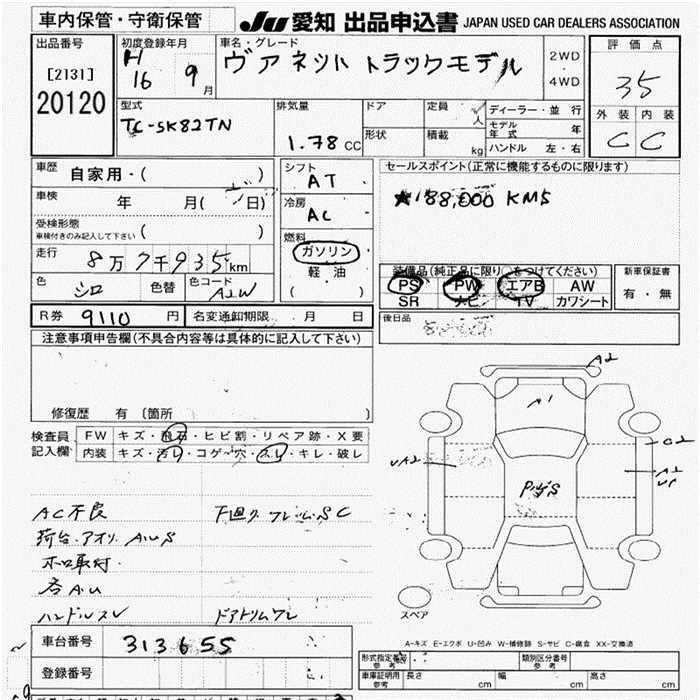 車内保管・守衛保管
JU 愛知 出品申込書 JAPAN USED CAR DEALERS ASSOCIATION
出品番号
[2131]
20120
初度登録年月
H16 9月
車名・グレード
ヴァネットトラックモデル
2WD
・
4WD
評価点
35
外装 内装
C C
型式
TC-SK82TN
排気量
1.78 CC
ドア
形状
定員 人
積載 kg
ディーラー・並行
モデル年式 年
ハンドル 左・右
車歴
自家用・( )
車検
年 月( 日)
受検形態
車検付きのみ記入して下さい ( )
走行
8万7千935km
色
シロ
色替
色コード
A2W
シフト
AT
冷房
AC
燃料
ガソリン
軽油
( )
セールスポイント(正常に機能するものに限ります)
★188,000 KMS
装備品(純正品に限り○をつけてください)
PS PW エアB AW
SR ナビ TV カワシート
新車保証書
有・無
R券 9110 円 名変通知期限 月 日
後日品
注意事項申告欄(不具合内容等は具体的に記入して下さい)
修復歴 有 〔箇所 〕
検査員記入欄
FW キズ・飛石・ヒビ割・リペア跡・X要
内装 キズ・汚レ・コゲ・穴・スレ・キレ・破レ
AC不良
下廻り フレームSC
荷台.アオリ AUS
ホロ取付
各AU
ハンドルスレ
ドアトリムワレ
A2
A1
C2
UA2
スペア
A-キズ E-エクボ U-凹み W-補修跡 S-サビ C-腐食 XX-交換済
車台番号 313655
登録番号
形式指定番号 参考
類別区分番号 参考
車庫証明用 参考 長さ cm 幅 cm 高さ cm